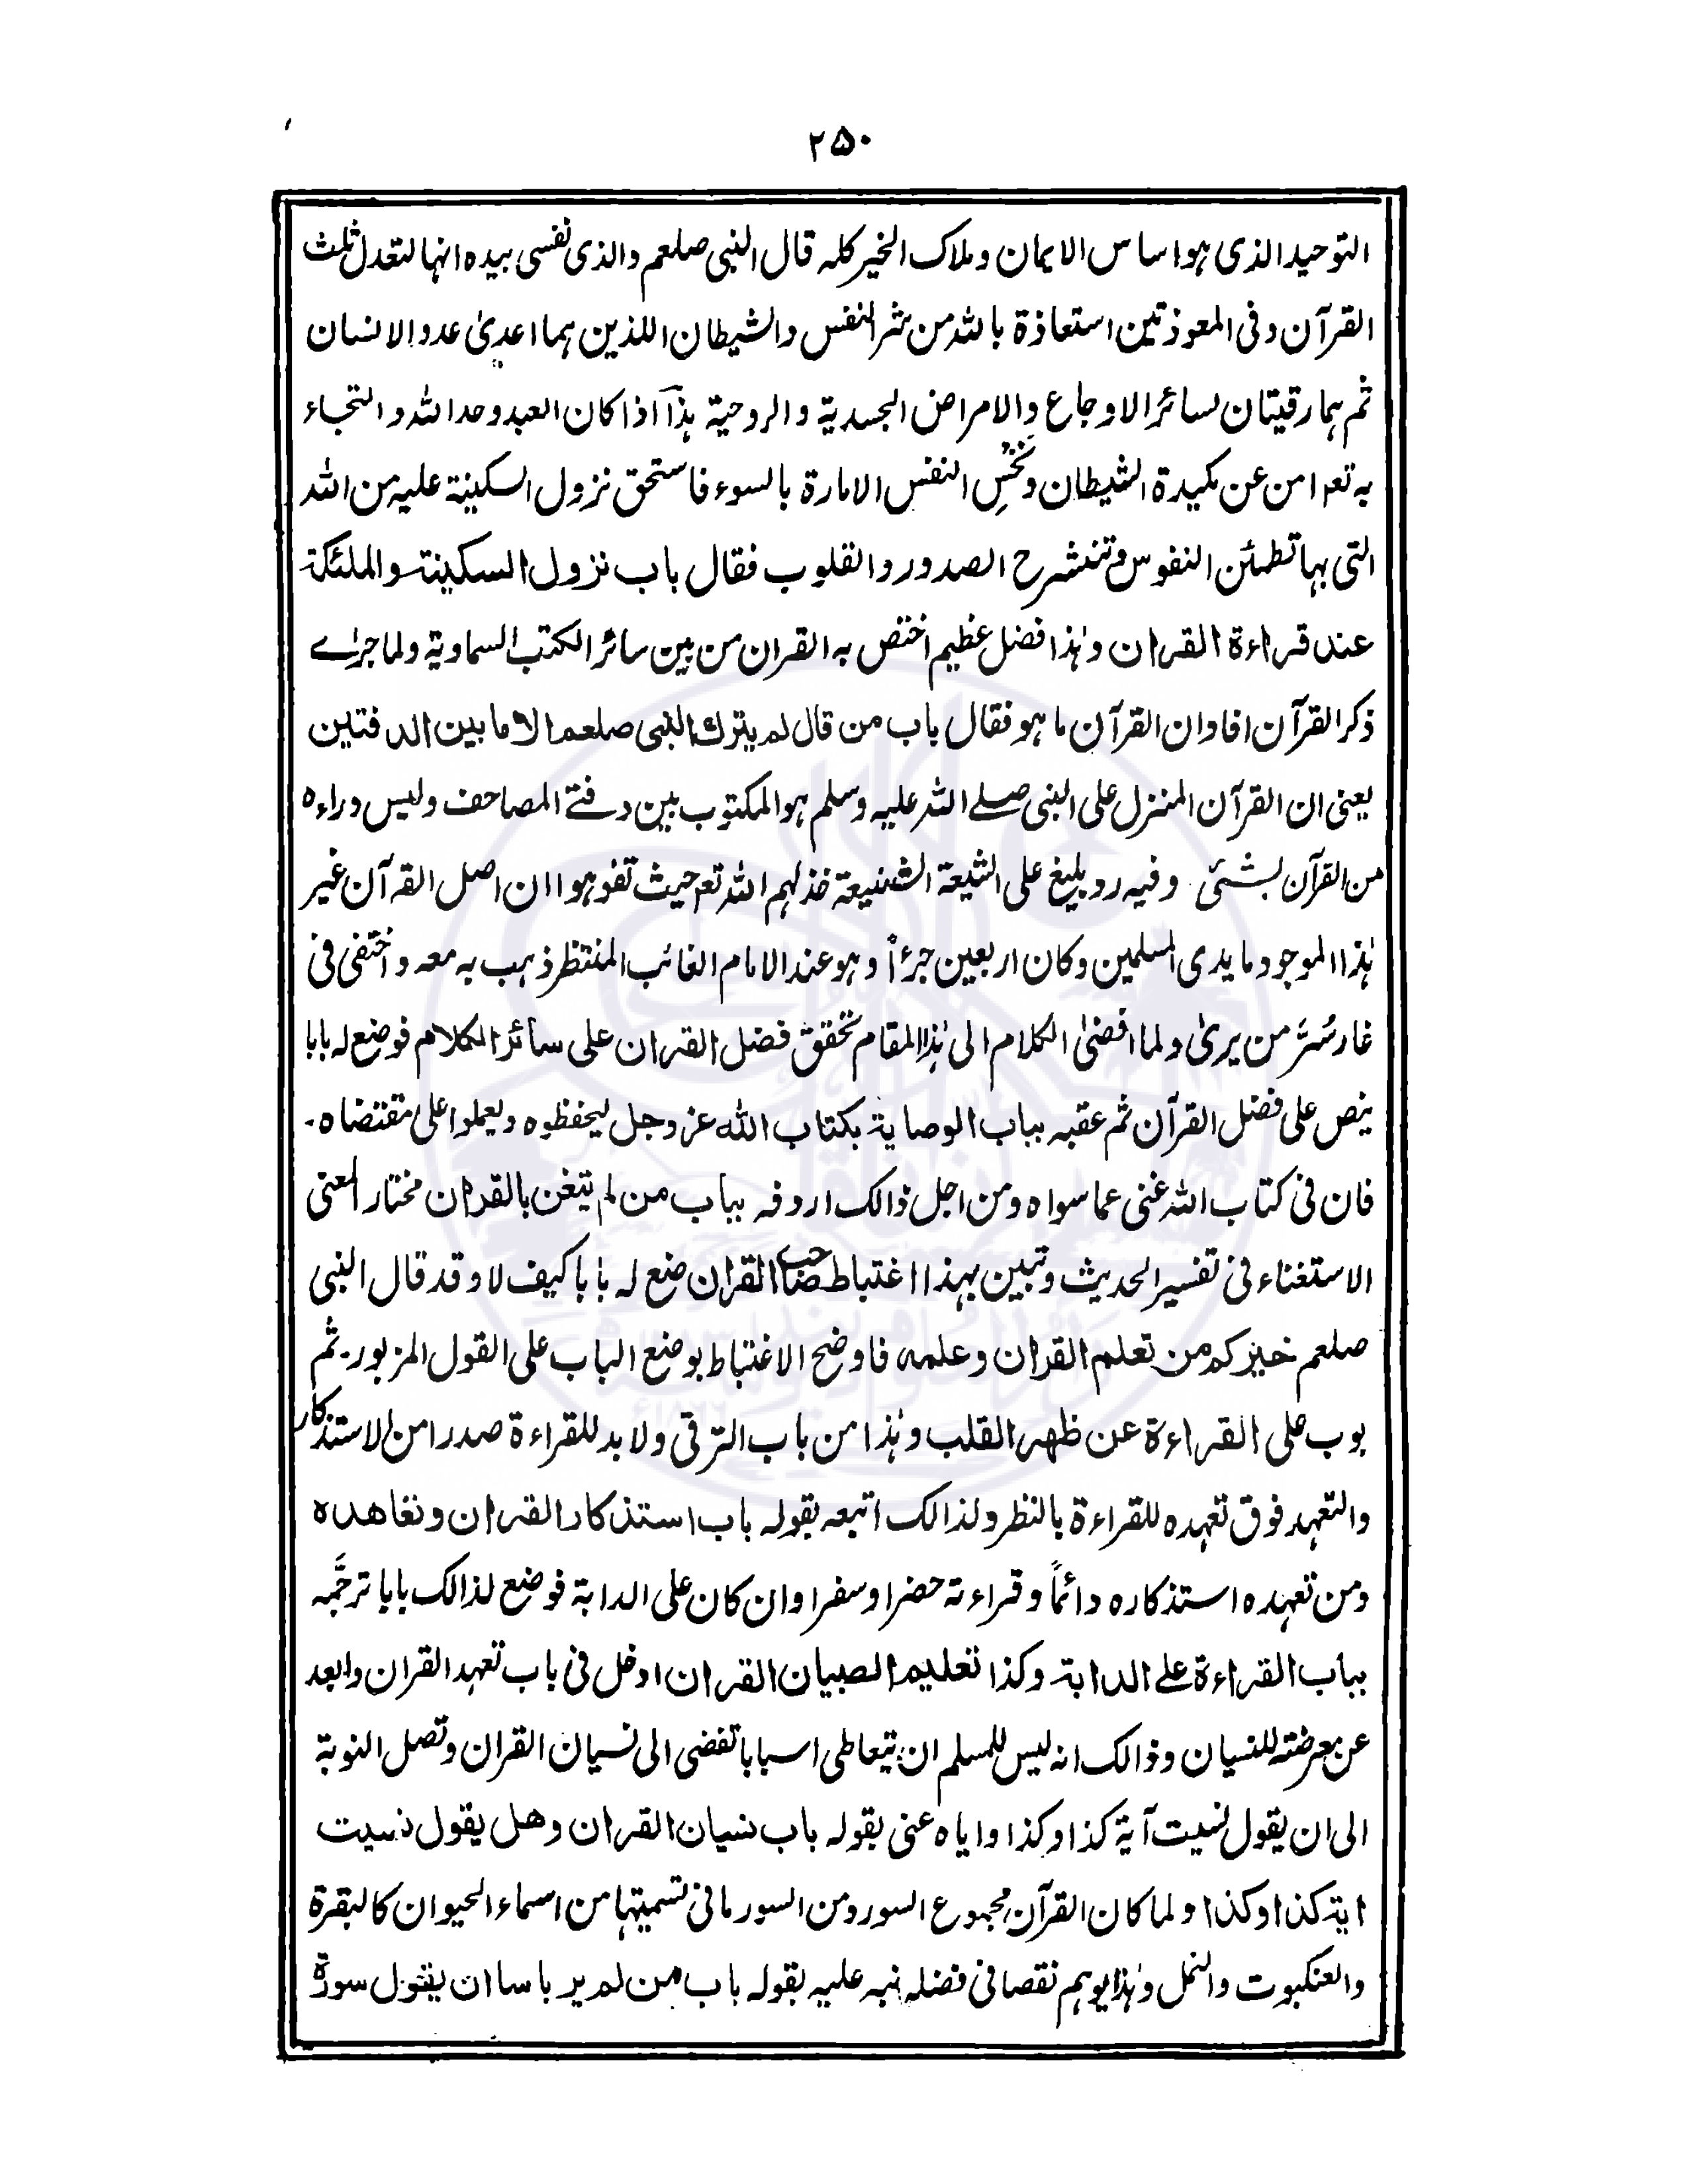 ۲۵۰
التوحيد الذى هو اساس الايمان وملاك الخير كله قال النبى صلعم والذى نفسى بيده انها لتعدل ثلث
القرآن وفى المعوذتين استعاذة بالله من شر النفس والشيطان اللذين هما اعدىٰ عدو الانسان
ثم هما رقيتان لسائر الاوجاع والامراض الجسدية والروحية هٰذا اذا كان العبد وحد الله والتجاء
به تعه امن عن مكيدة الشيطان ونَخْسِ النفس الامارة بالسوء فاستحق نزول السكينة عليه من الله
التى بها تطمئن النفوس وتنشرح الصدور والقلوب فقال باب نزول السكينة والملئكة
عند قراءة القران وهٰذا فضل عظيم اختص به القران من بين سائر الكتب السماوية ولما جرٰے
ذكر القرآن افاد ان القرآن ما هو فقال باب من قال لم يترك النبى صلعم الا ما بين الدفتين
يعنى ان القرآن المنزل على النبى صلے الله عليه وسلم هو المكتوب بين دفتے المصاحف وليس وراءه
من القرآن بشئ وفيه رد بليغ على الشيعة الشنيعة خذلهم الله تعه حيث تفوهوا ان اصل القرآن غير
هٰذا الموجود ما يدى المسلمين وكان اربعين جزءاً وهو عند الامام الغائب المنتظر ذهب به معه واختفى فى
غار سُرَّ من يرىٰ ولما افضىٰ الكلام الى هٰذا المقام تحقق فضل القران على سائر الكلام فوضع له بابا
ينص على فضل القرآن ثم عقبه بباب الوصاية بكتاب الله عز وجل ليحفظوه ويعملوا على مقتضاه۔
فان فى كتاب الله غنى عما سواه ومن اجل ذالك اردفه بباب من لم يتغن بالقران مختار المعنى
الاستغناء فى تفسير الحديث وتبين بهذا اغتباط صاحب القران ضع له بابا كيف لا وقد قال النبى
صلعم خيركم من تعلم القران وعلمه فاوضح الاغتباط بوضع الباب على القول المزبور۔ ثم
بوب على القراءة عن ظهر القلب وهٰذا من باب الترقى ولا بد للقراءة صدرا من الاستذكار
والتعهد فوق تعهده للقراءة بالنظر ولذالك اتبعه بقوله باب استذكار القران وتعاهده
ومن تعهده استذكاره دائماً وقراءته حضرا وسفرا وان كان على الدابة فوضع لذالك بابا ترجَّمه
بباب القراءة علے الدابة وكذا تعليم الصبيان القران ادخل فى باب تعهد القران وابعد
عن معرضته للنسيان وذالك انه ليس للمسلم ان يتعاطى اسبابا تفضى الى نسيان القران وتصل النوبة
الى ان يقول نسيت آية كذا وكذا واياه عنى بقوله باب نسيان القران وهل يقول نسيت
اية كذا وكذا ولما كان القرآن مجموع السور ومن السور ما فى تسميتها من اسماء الحيوان كالبقرة
والعنكبوت والنمل وهٰذا يوهم نقصا فى فضله نبه عليه بقوله باب من لم ير باسا ان يقول سورة